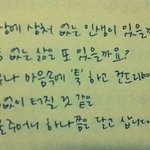 에 상처 없는 인생이 있을
없는 삶을 또 있을까요?
나 마음속에 '툭' 하고 건드리
없이 터질 것 같은
주머니 하나쯤 달고 삽니다